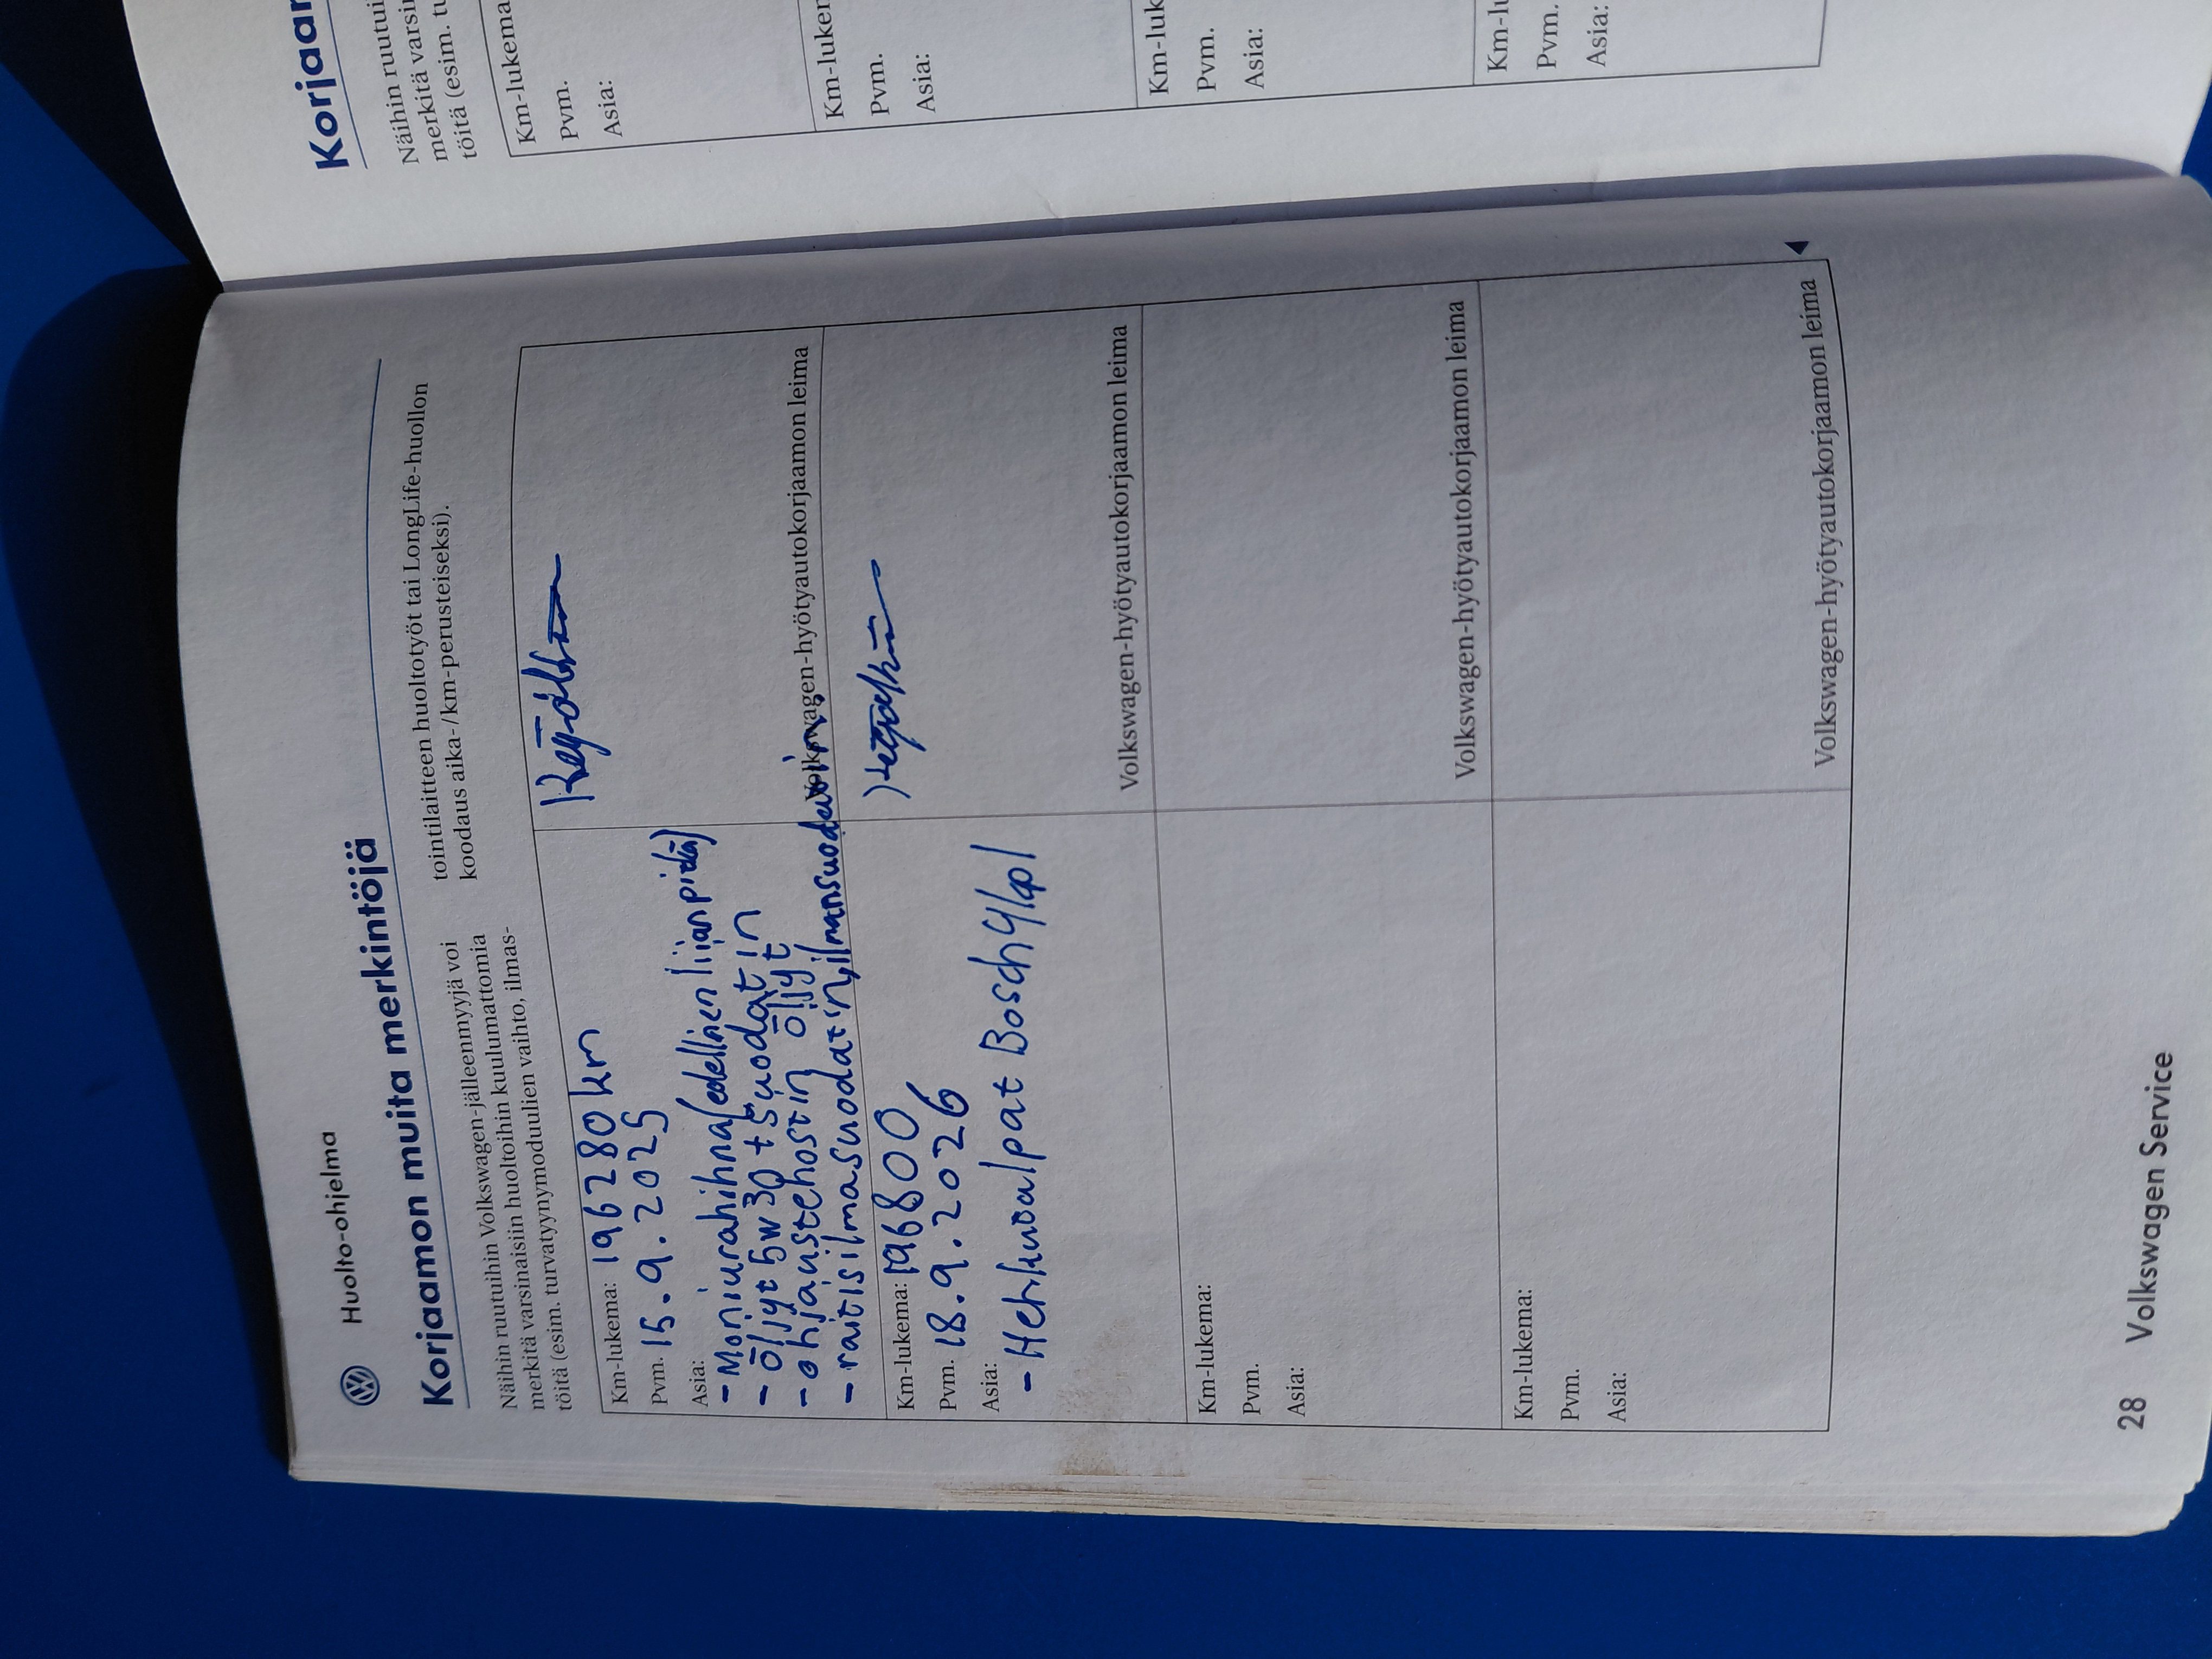 Huolto-ohjelma
Korjaamon muita merkintöjä
Näihin ruutuihin Volkswagen-jälleenmyyjä voi
merkitä varsinaisiin huoltoihin kuulumattomia
töitä (esim. turvatyynymoduulien vaihto, ilmas-
tointilaitteen huoltotyöt tai LongLife-huollon
koodaus aika-/km-perusteiseksi).
Km-lukema: 196280 km
Pvm. 15.9.2025
Asia:
- Moniurahihna (edellinen liian pitkä)
- öljyt 5w30 + suodatin
- ohjaustehostin öljyt
- raitisilmasuodatin, ilmansuodatin
Volkswagen-hyötyautokorjaamon leima
Km-lukema: 196800
Pvm. 18.9.2026
Asia:
- Hehkutulpat Bosch 4kpl
Volkswagen-hyötyautokorjaamon leima
Km-lukema:
Pvm.
Asia:
Volkswagen-hyötyautokorjaamon leima
Km-lukema:
Pvm.
Asia:
Volkswagen-hyötyautokorjaamon leima
28 Volkswagen Service
Korjaar
Näihin ruutui
merkitä varsir
töitä (esim. tu
Km-lukema
Pvm.
Asia:
Km-luker
Pvm.
Asia:
Km-luk
Pvm.
Asia:
Km-lu
Pvm.
Asia: